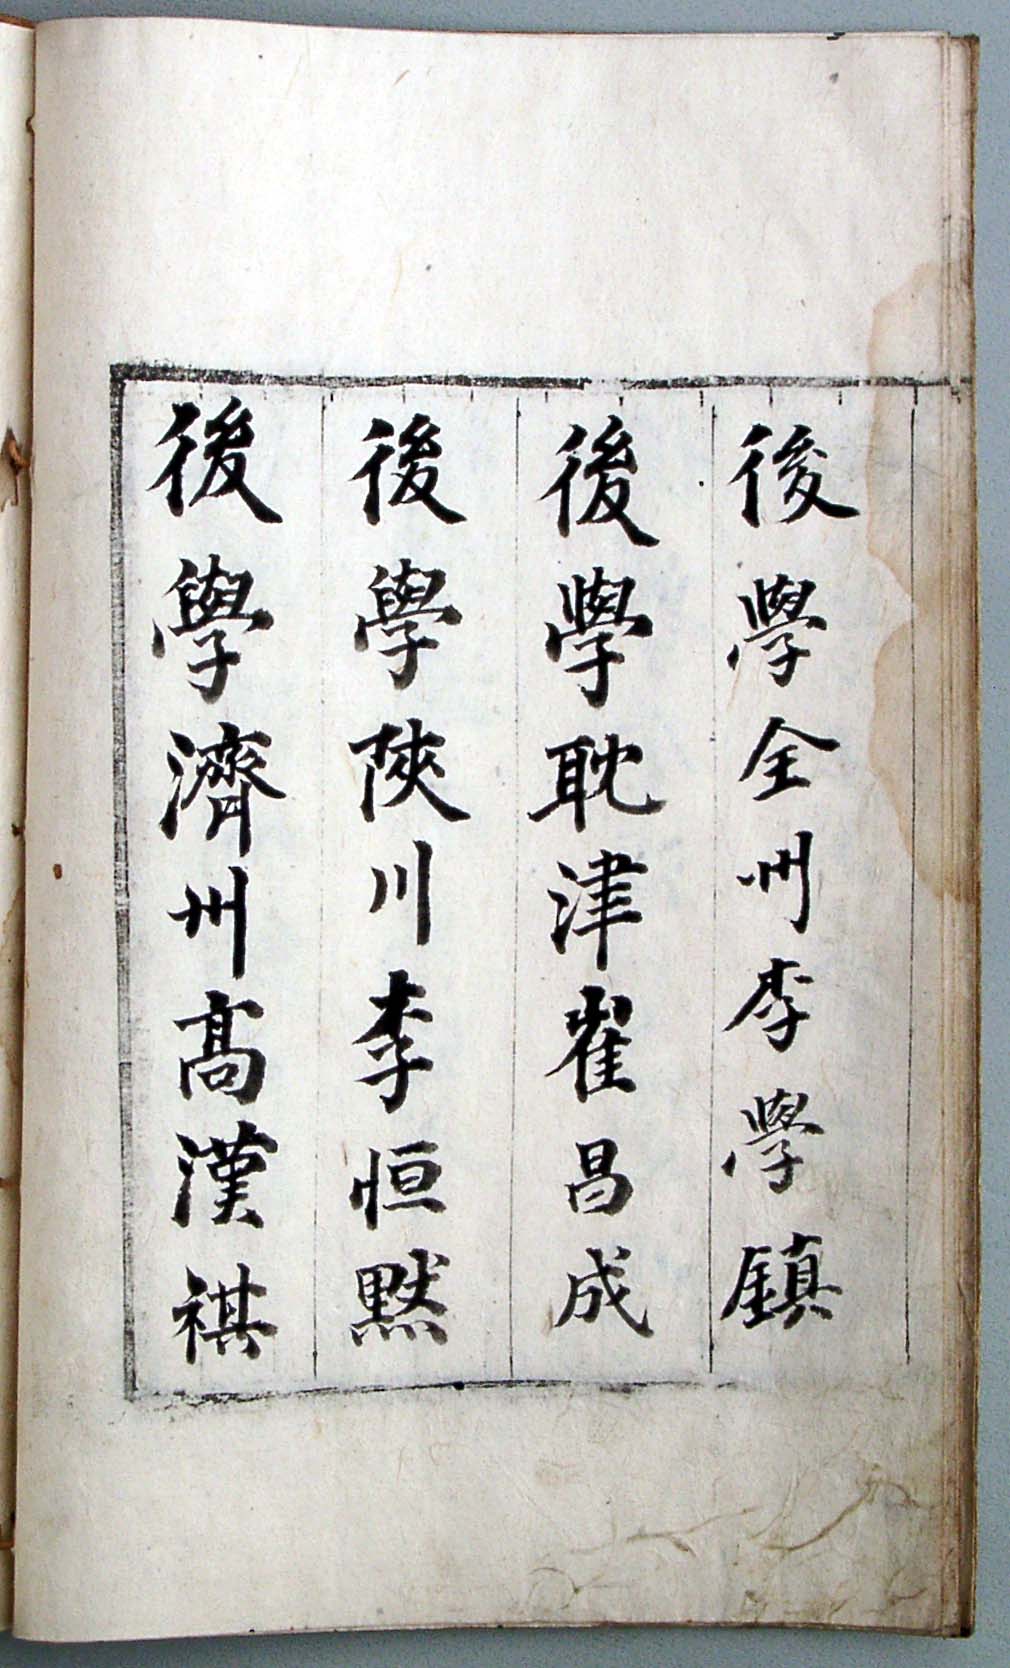 後學全州李學鎮
後學耽津崔昌成
後學陜川李恒黙
後學濟州髙漢祺